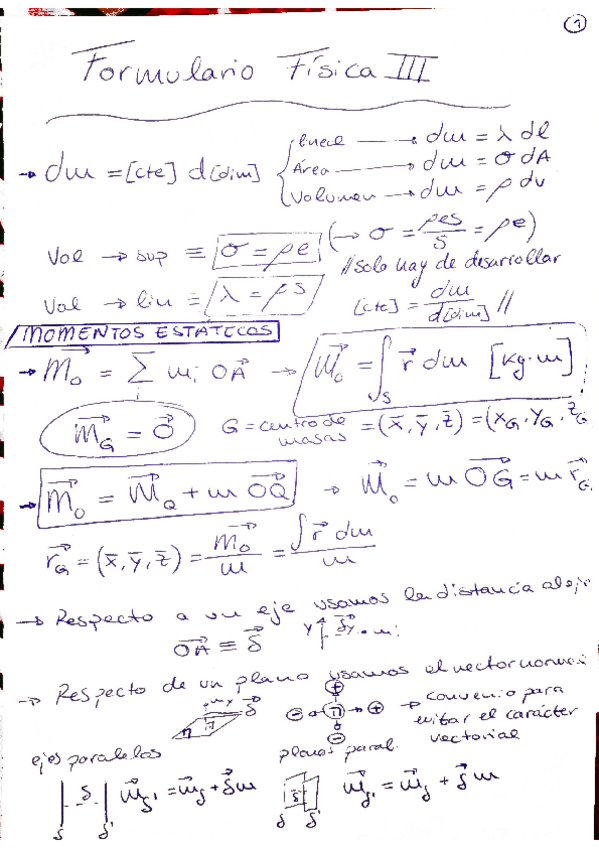 1
Formulario Física III
→ dm = [cte] d[dim] { lineal → dm = λ dl
Área → dm = σ dA
Volumen → dm = ρ dv
Vol → sup ≡ σ = ρe (→ σ = ρes/s = ρe)
// solo hay de desarrollar
Vol → lin ≡ λ = ρs [cte] = dm/d[dim] //
MOMENTOS ESTÁTICOS
→ M⃗o = ∑ mi OA⃗ → M⃗o = ∫s r⃗ dm [kg·m]
M⃗G = 0⃗ G = centro de masas = (x̄, ȳ, z̄) = (xG, yG, zG
→ M⃗o = M⃗Q + m OQ⃗ → M⃗o = m OG⃗ = m r⃗G
r⃗G = (x̄, ȳ, z̄) = M⃗o/m = ∫ r⃗ dm/m
→ Respecto a un eje usamos la distancia al eje
OA⃗ ≡ δ⃗ y δy mi
→ Respecto de un plano usamos el vector normal
π δ⃗ ⊕ ⊖ π ⊕ ⊖ → convenio para
evitar el carácter
vectorial
ejes paralelos planos paral.
δ m⃗δ' = m⃗δ + δ⃗m δ m⃗δ' = m⃗δ + δ⃗m
δ δ' δ δ'